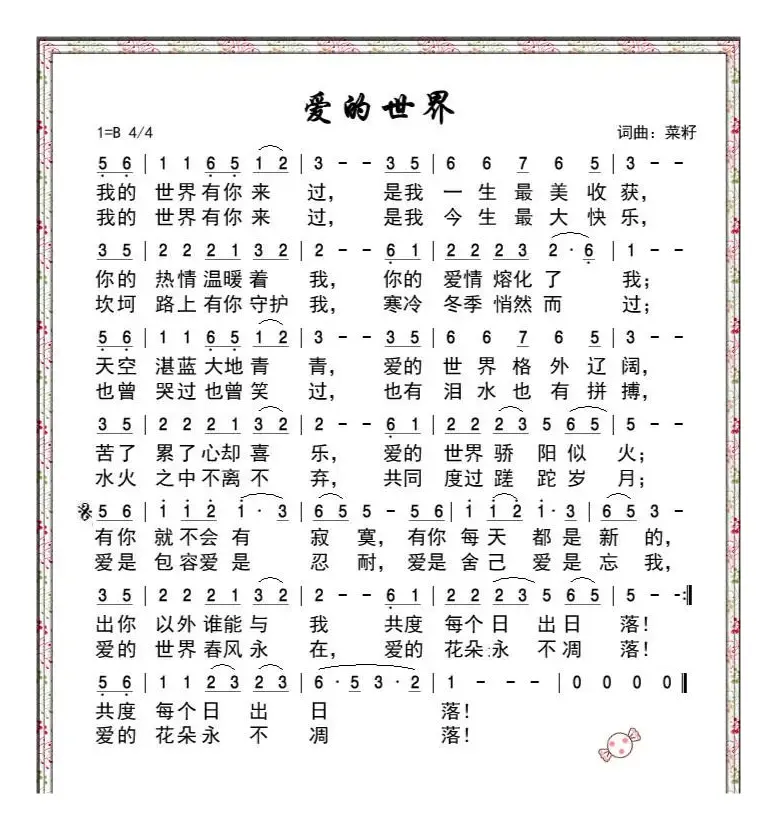 爱的世界
1=B 4/4 词曲：菜籽
5 6 | 1 1 6 5 1 2 | 3 - - 3 5 | 6 6 7 6 5 | 3 - -
我的 世界有你来 过， 是我 一 生 最 美 收 获，
我的 世界有你来 过， 是我 今 生 最 大 快 乐，
3 5 | 2 2 2 1 3 2 | 2 - - 6 1 | 2 2 2 3 2 · 6 | 1 - -
你的 热情温暖着 我， 你的 爱情 熔化 了 我；
坎坷 路上有你守护 我， 寒冷 冬季 悄然 而 过；
5 6 | 1 1 6 5 1 2 | 3 - - 3 5 | 6 6 7 6 5 | 3 - -
天空 湛蓝大地青 青， 爱的 世 界 格 外 辽 阔，
也曾 哭过也曾笑 过， 也有 泪 水 也 有 拼 搏，
3 5 | 2 2 2 1 3 2 | 2 - - 6 1 | 2 2 2 3 5 6 5 | 5 - -
苦了 累了心却喜 乐， 爱的 世界 骄 阳 似 火；
水火 之中不离不 弃， 共同 度过 蹉 跎 岁 月；
5 6 | 1 1 2 1 · 3 | 6 5 5 - 5 6 | 1 1 2 1 · 3 | 6 5 3 -
有你 就不会有 寂 寞， 有你 每 天 都 是 新 的，
爱是 包容爱是 忍 耐， 爱是 舍 己 爱 是 忘 我，
3 5 | 2 2 2 1 3 2 | 2 - - 6 1 | 2 2 2 3 5 6 5 | 5 - - :‖
出你 以外谁能与 我 共度 每个 日 出 日 落！
爱的 世界春风永 在， 爱的 花朵 永 不 凋 落！
5 6 | 1 1 2 3 2 3 | 6 · 5 3 · 2 | 1 - - - | 0 0 0 0 ‖
共度 每个日 出 日 落！
爱的 花朵永 不 凋 落！